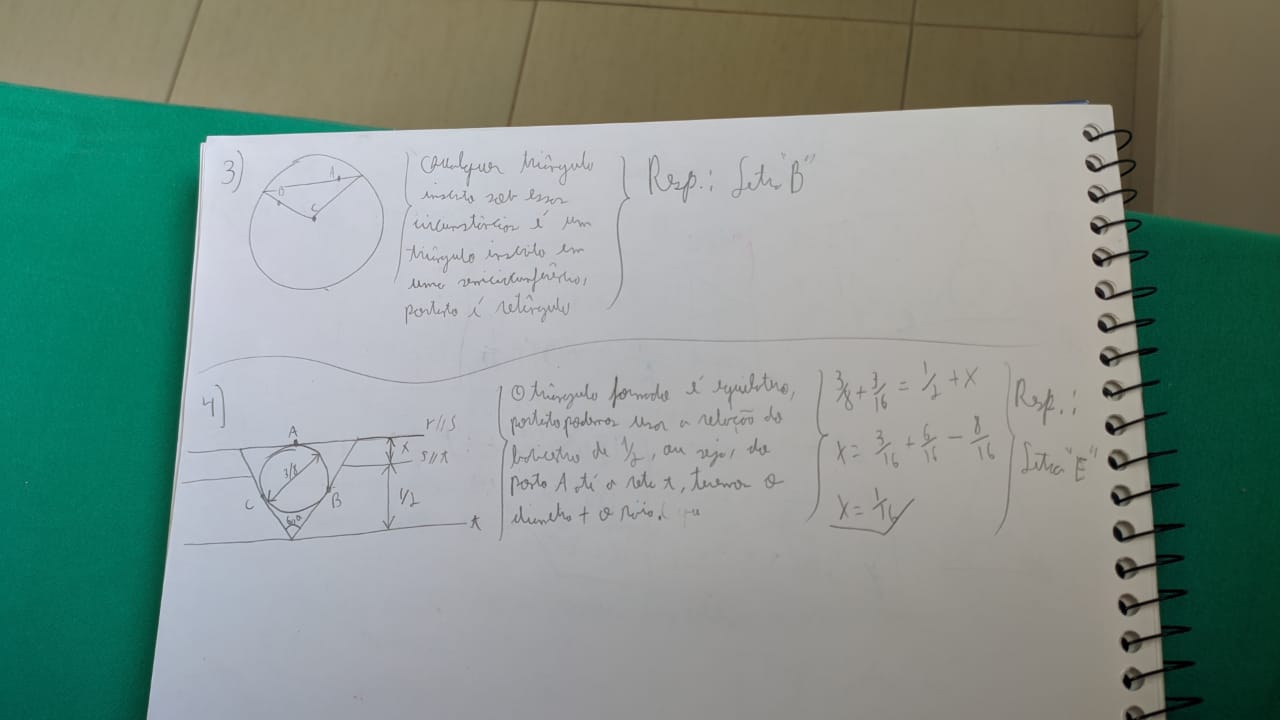 3)
A
D
C
Qualquer triângulo
inscrito sob essas
circunstâncias é um
triângulo inscrito em
uma semicircunferência,
portanto é retângulo
Resp.: Letra "B"
4)
A
r//s
x
s//t
3/8
1/2
C
B
60°
t
O triângulo formado é equilátero,
portanto podemos usar a relação do
baricentro de 1/2, ou seja, do
ponto A até a reta t, teremos o
diâmetro + o raio.
3/8 + 3/16 = 1/2 + x
x = 3/16 + 6/16 - 8/16
x = 1/16
Resp.:
Letra "E"